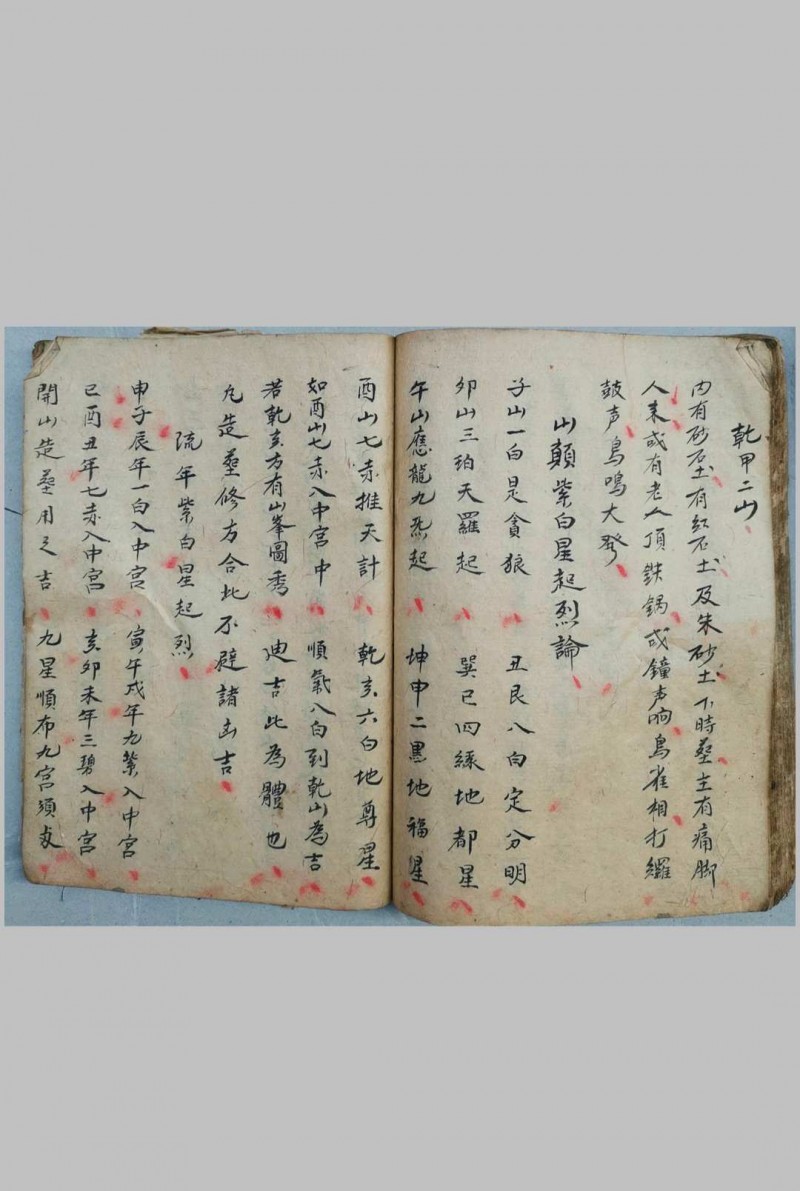 乾甲二山
内有砂石土有紅石土及朱砂土下時塟主有痛脚
人来或有老人頂鉄鍋或鐘声响鳥雀相打鑼
鼓声鳥鳴大發
山顛紫白星起烈論
子山一白是貪狼 丑艮八白定分明
卯山三珀天羅起 巽巳四緑地都星
午山應龍九炁起 坤申二黒地福星
酉山七赤推天計 乾亥六白地尊星
如酉山七赤入中宮中 順氣八白到乾山為吉
若乾亥方有山峯圖秀 迪吉此為體也
凡造塟修方合此不避諸凶吉
流年紫白星起烈
申子辰年一白入中宮 寅午戌年九紫入中宮
巳酉丑年七赤入中宮 亥卯未年三碧入中宮
開山造塟用之吉 九星順布九宮須